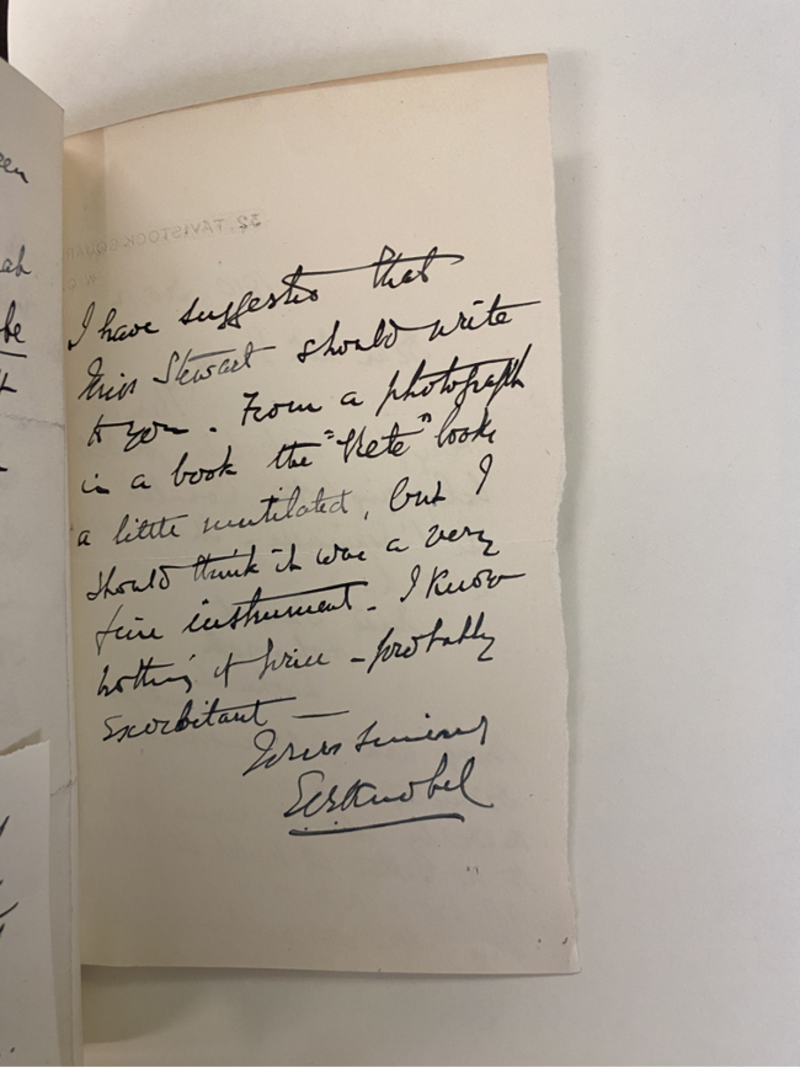 32, TAVISTOCK SQUAR
W.C.
I have suggested that
Miss Stewart should write
to you. From a photograph
in a book the "Rete" looks
a little mutilated, but I
should think it was a very
fine instrument. I know
nothing of price – probably
exorbitant —
Yours sincerely
E B Knobel
een
ah
be